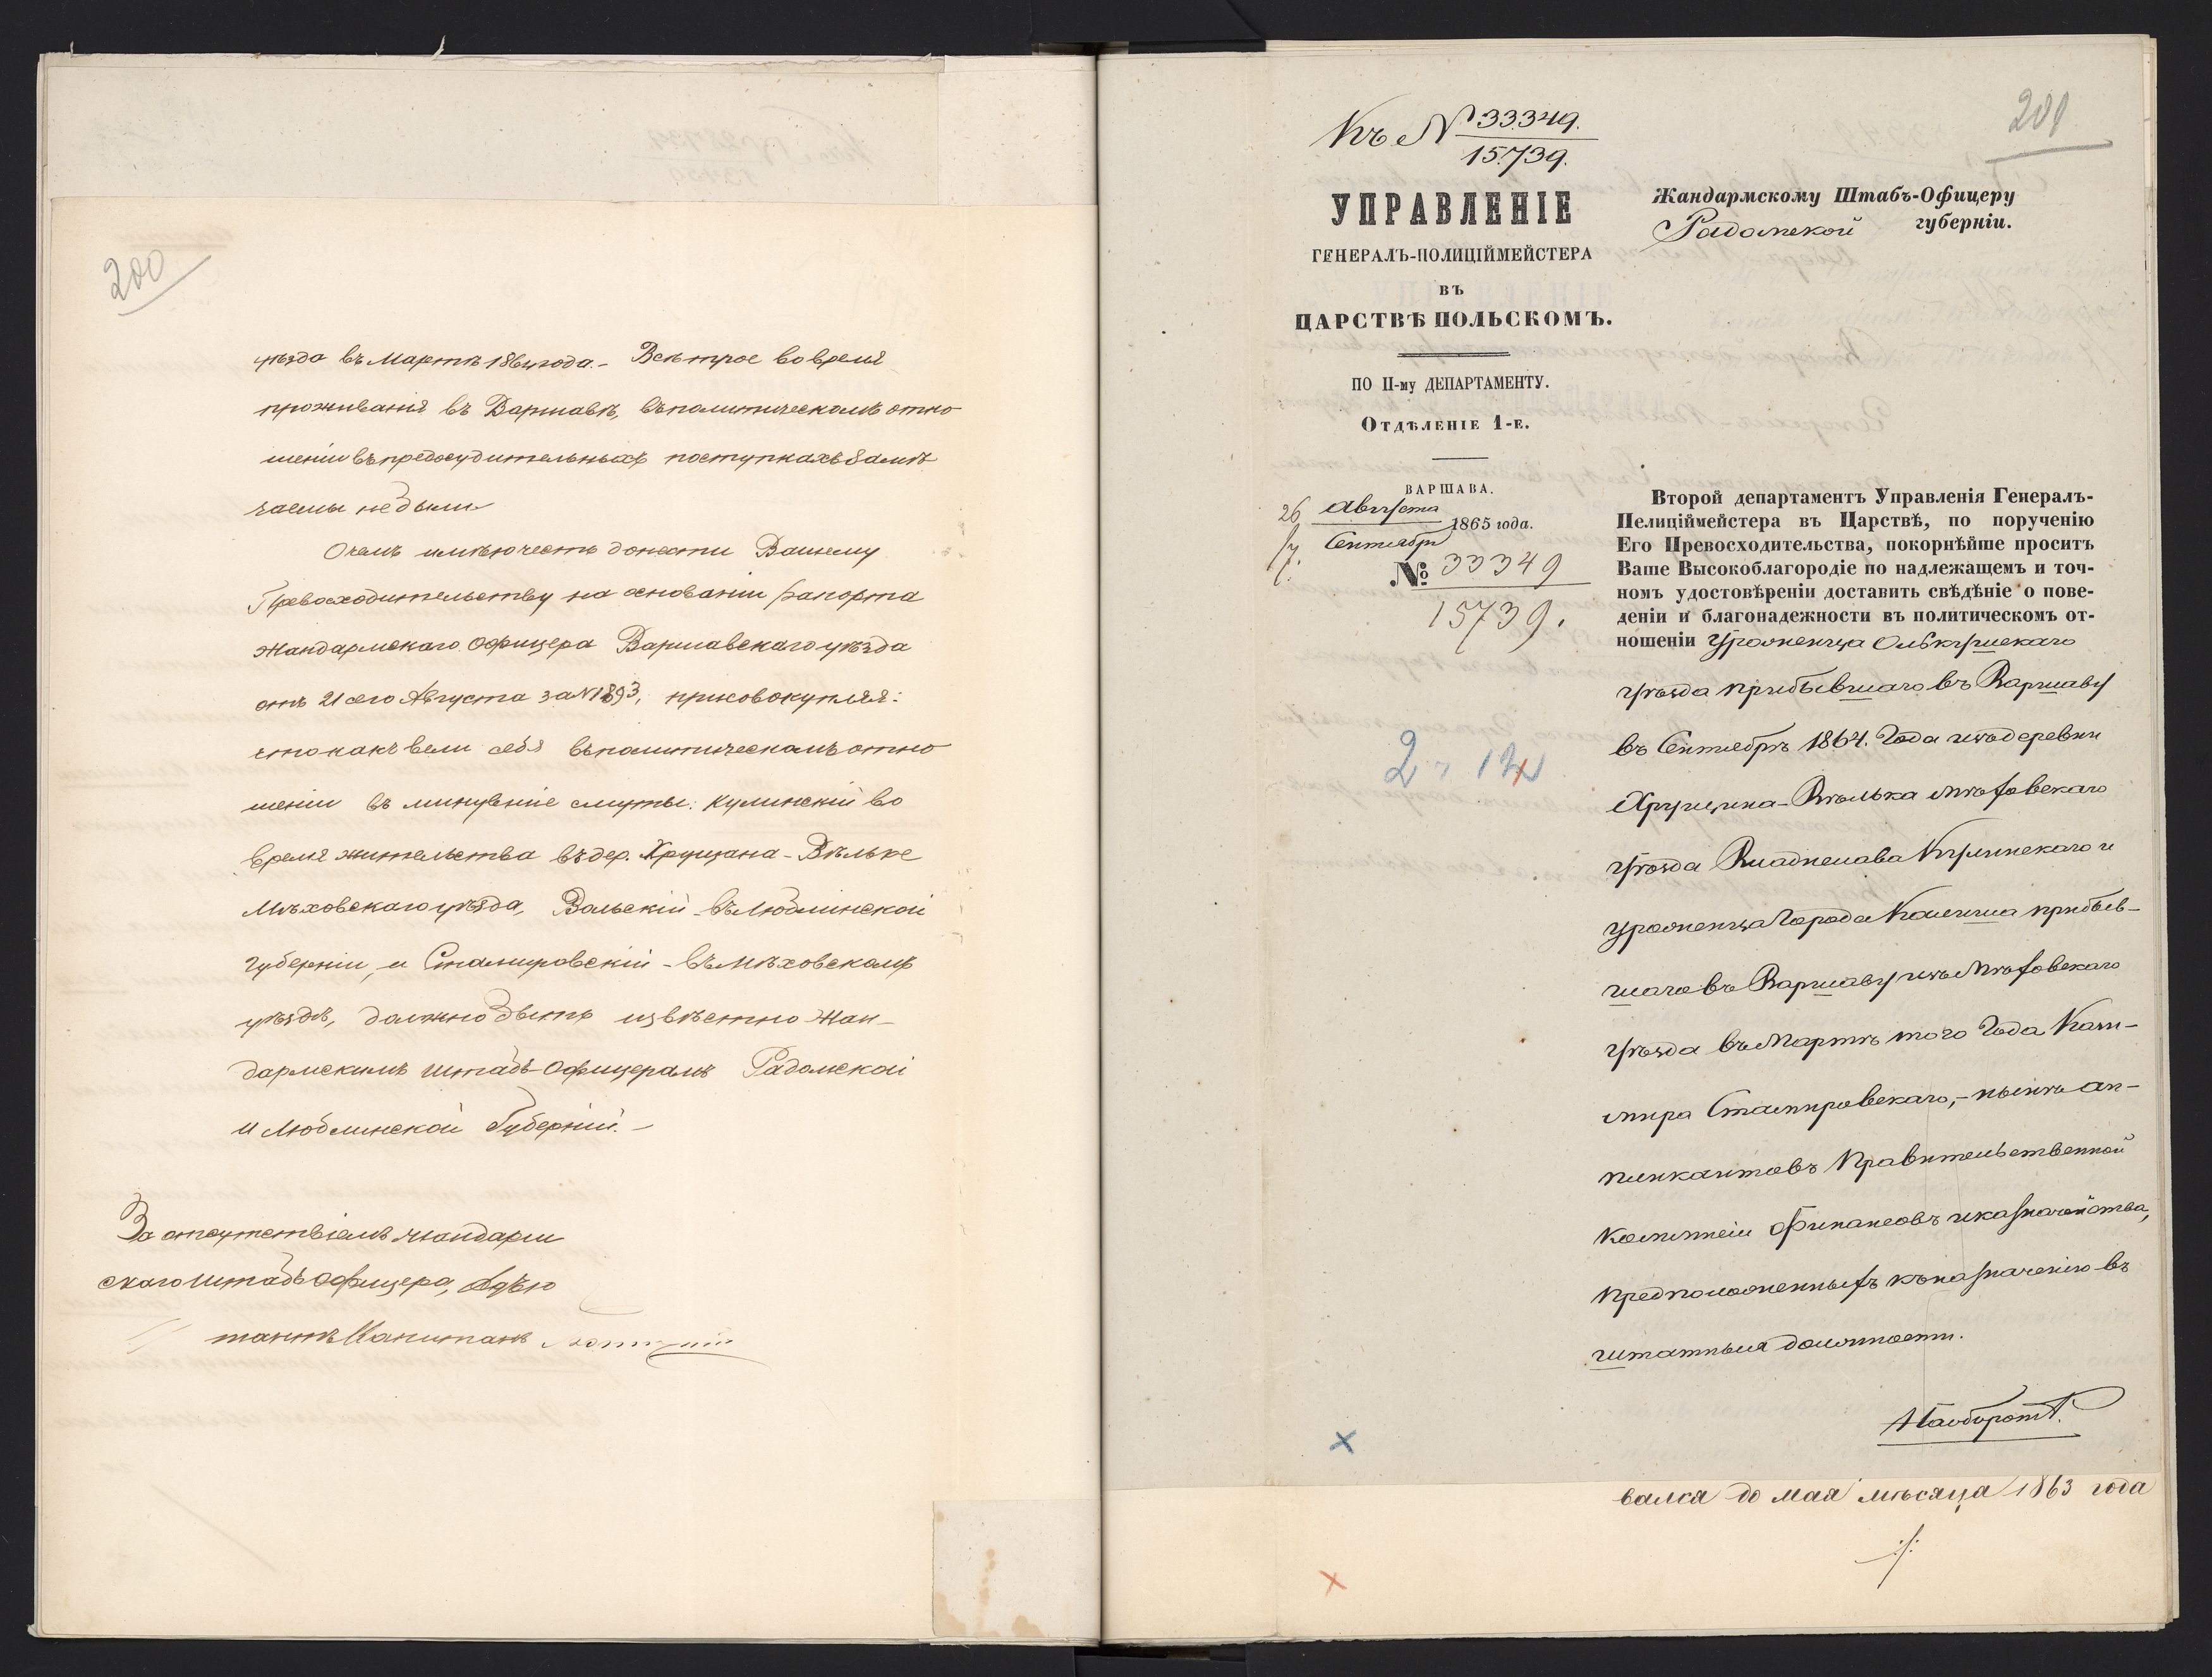 200
уѣзда въ Мартѣ 1864 года.- Всѣ трое во время
проживанія въ Варшавѣ, въ политическомъ отно
шеніи въ предосудительныхъ поступкахъ замѣ
чаемы не были
О чемъ имѣю честь донести Вашему
Превосходительству на основаніи рапорта
Жандармскаго Офицера Варшавскаго уѣзда
отъ 21 сего Августа за N 1893, присовокупляя:
что какъ вели себя въ политическомъ отно
шеніи въ минувшіе смуты: Кулинскій во
время жительства въ дер. Хрущана-Вѣльке
Мѣховскаго уѣзда, Вольскій въ Люблинской
губерніи, и Сталировскій - въ Мѣховскомъ
уѣздѣ, должно быть извѣстно Жан-
дармскимъ Штабъ-Офицерамъ Радомской
и Люблинской Губерній.-
За отсутствіемъ Жандарм
скаго Штабъ Офицера, Адъю
тантъ Капитанъ
201
Къ № 33349.
15739.
УПРАВЛЕНІЕ
ГЕНЕРАЛЪ-ПОЛИЦІЙМЕЙСТЕРА
ВЪ
ЦАРСТВѢ ПОЛЬСКОМЪ.
ПО II-му ДЕПАРТАМЕНТУ.
Отдѣленіе 1-е.
ВАРШАВА.
26 Августа
7. Сентября 1865 года.
№ 33349
15739.
Жандармскому Штабъ-Офицеру
Радомской губерніи.
Второй департаментъ Управленія Генералъ-
Пелиціймейстера въ Царствѣ, по порученію
Его Превосходительства, покорнѣйше проситъ
Ваше Высокоблагородіе по надлежащемъ и точ-
номъ удостовѣреніи доставить свѣдѣніе о пове-
деніи и благонадежности въ политическомъ от-
ношеніи уроженца Олькушскаго
уѣзда прибывшаго въ Варшаву
въ Сентябрѣ 1864. года изъ деревни
Хрущина-Вѣлька Мѣховскаго
уѣзда Владислава Кулинскаго и
уроженца города Калиша прибыв-
шаго въ Варшаву изъ Мѣховскаго
уѣзда въ Мартѣ того года Кази-
мира Сталировскаго,- нынѣ ап-
пликантовъ Правительственной
Коммиссіи Финансовъ и казначейства,
предположенныхъ къ назначенію въ
штатныя должности.
Наоборотъ.
вался до мая мѣсяца 1863 года
./.